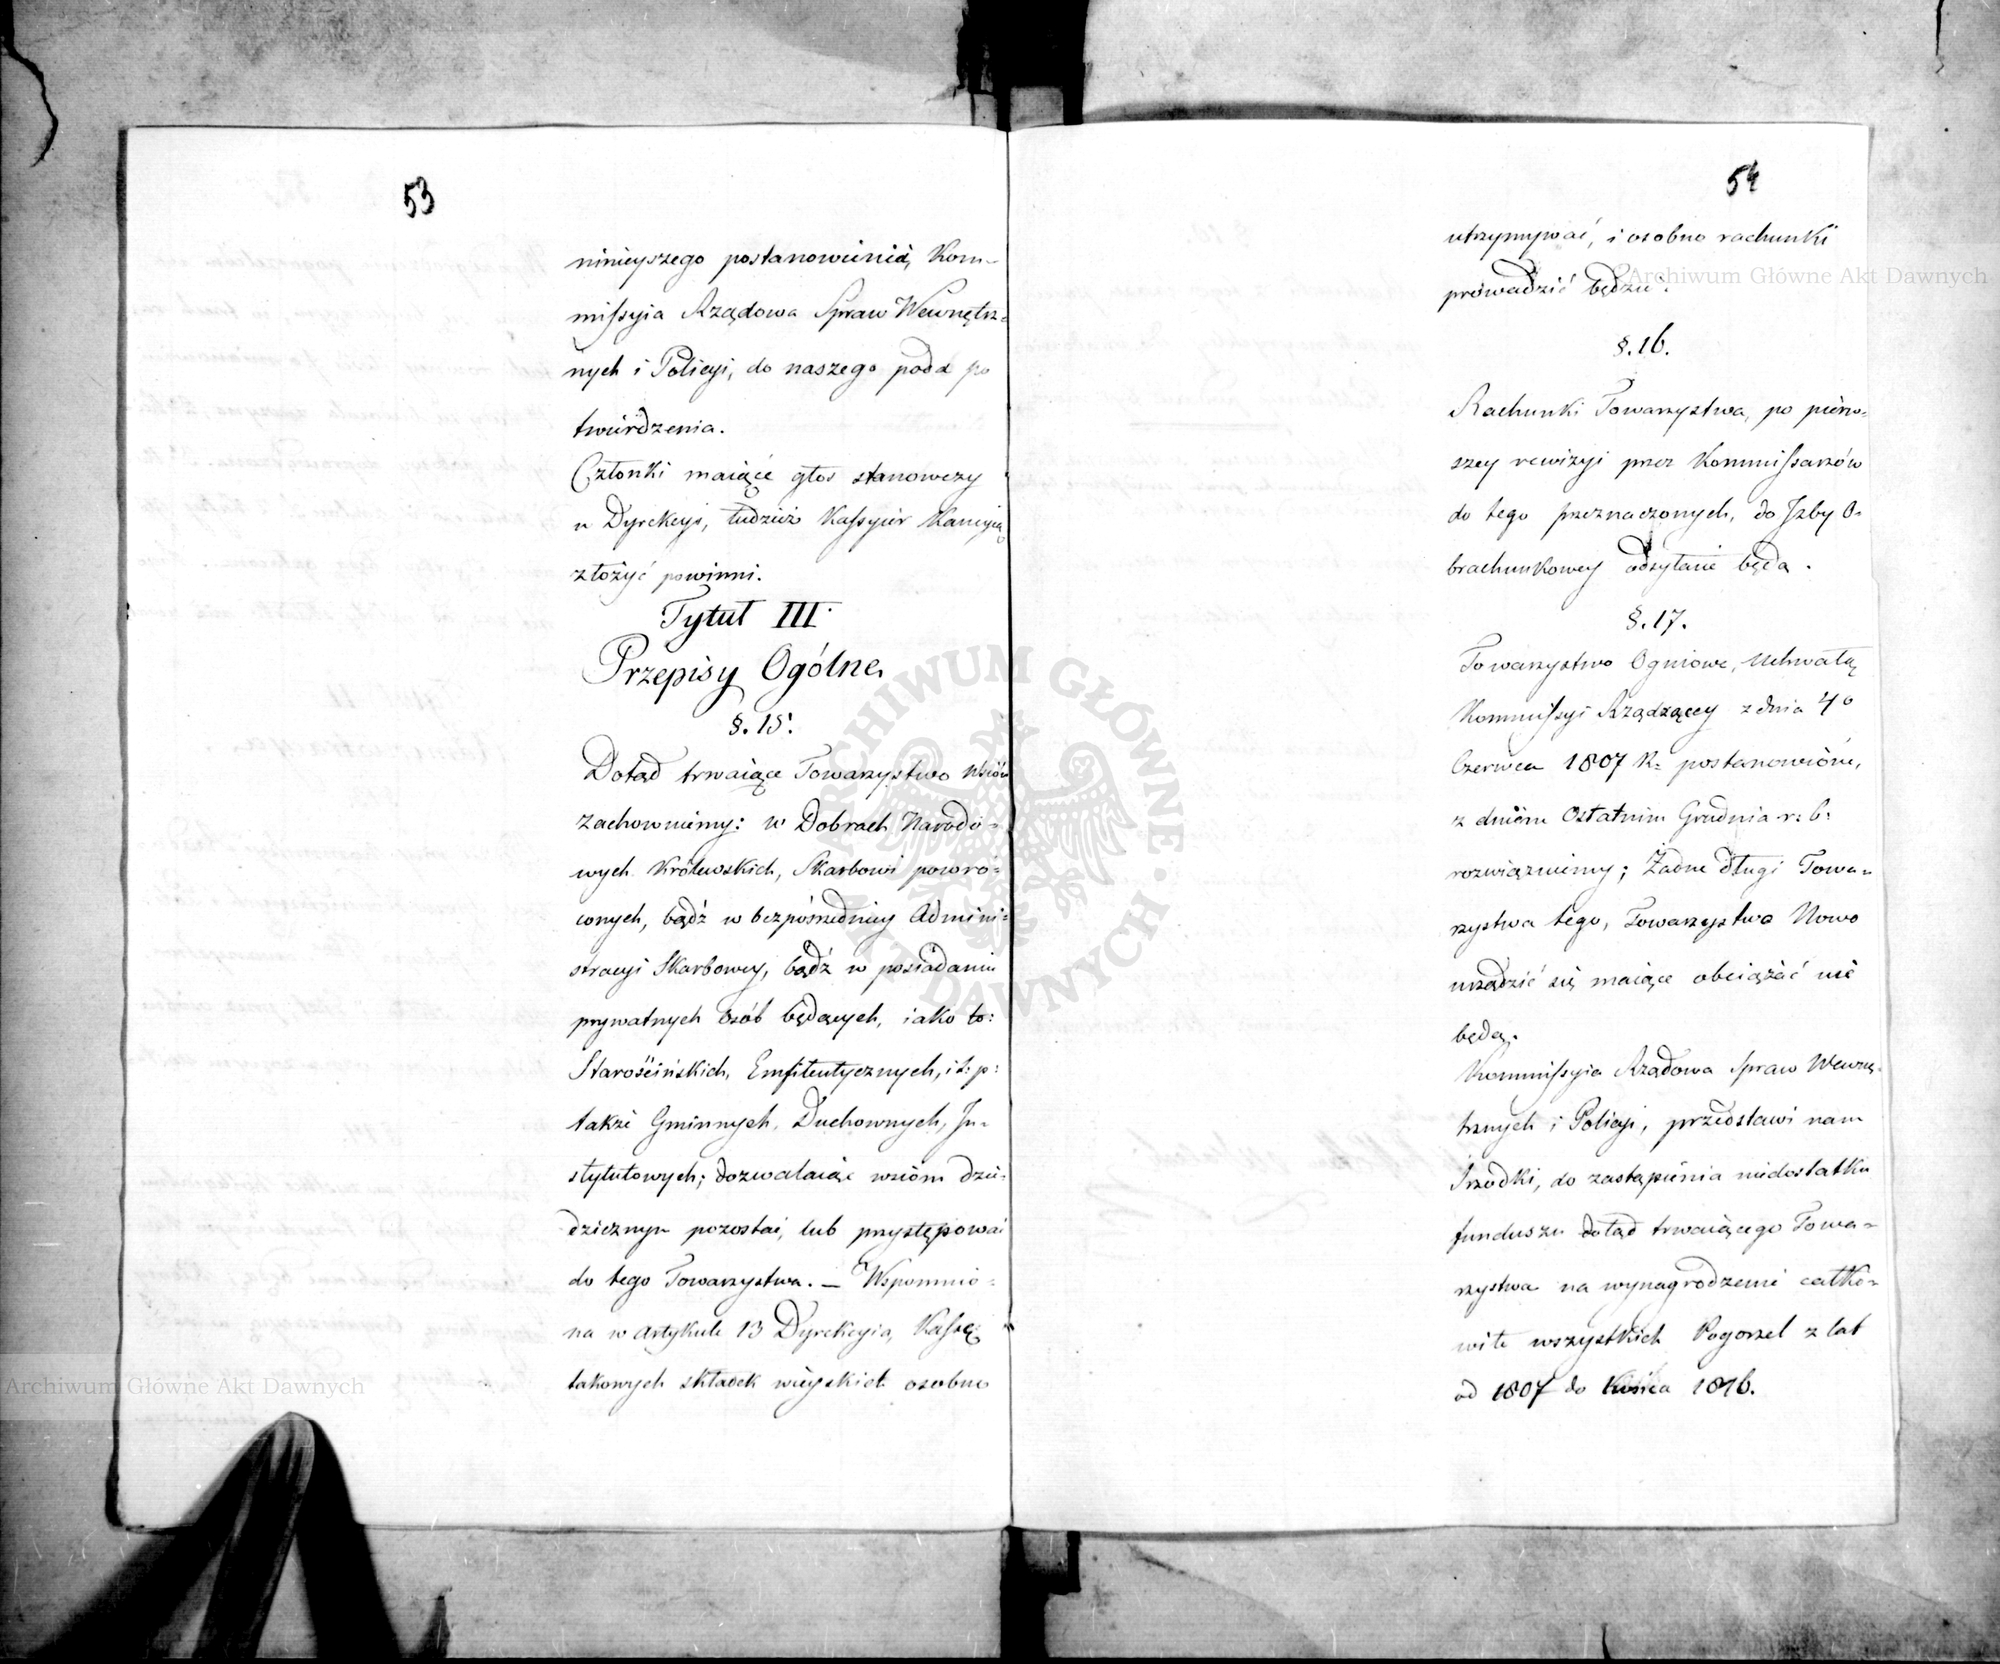 53
ninieyszego postanowienia, Kom-
missyia Rządowa Spraw Wewnętrz-
nych i Policyi, do naszego poda po
twierdzenia.
Członki maiące głos stanowczy
w Dyrekcyi, tudzież Kassyier Kaucyią
złożyć powinni.
Tytuł III.
Przepisy Ogólne.
§. 15.
Dotąd trwaiące Towarzystwo Wsiów
zachowuiemy: w Dobrach Narodo-
wych Królewskich, Skarbowi powró-
conych, bądź w bezpośredniey Admini-
stracyi Skarbowey, bądź w posiadaniu
prywatnych osób będących, iako to:
Starościńskich, Emfiteutycznych, i t: p:
także Gminnych, Duchownych, In-
stytutowych; dozwalaiąc wsiom dzie-
dzicznym pozostać, lub przystępować
do tego Towarzystwa. — Wspomnio-
na w Artykule 13 Dyrekcyia, Kassę
takowych składek wieyskich osobno
54
utrzymywać, i osobno rachunki
prowadzić będzie.
§. 16.
Rachunki Towarzystwa, po pierw-
szey rewizyi przez Kommissarzów
do tego przeznaczonych, do Izby O-
brachunkowey odsyłane będą.
§. 17.
Towarzystwo Ogniowe, Uchwałą
Kommissyi Rządzącey z dnia 4o
Czerwca 1807 R: postanowione,
z dniem Ostatnim Grudnia r: b:
rozwiązuiemy; Żadne długi Towa-
rzystwa tego, Towarzystwa Nowo
urządzić się maiące obciążać nie
będą.
Kommissyia Rządowa Spraw Wewnę-
trznych i Policyi, przedstawi nam
Srzodki, do zastąpienia niedostatku
funduszu dotąd trwaiącego Towa-
rzystwa na wynagrodzenie całko-
wite wszystkich Pogorzel z lat
od 1807 do końca 1816.
Archiwum Główne Akt Dawnych
Archiwum Główne Akt Dawnych
ARCHIWUM GŁÓWNE AKT DAWNYCH